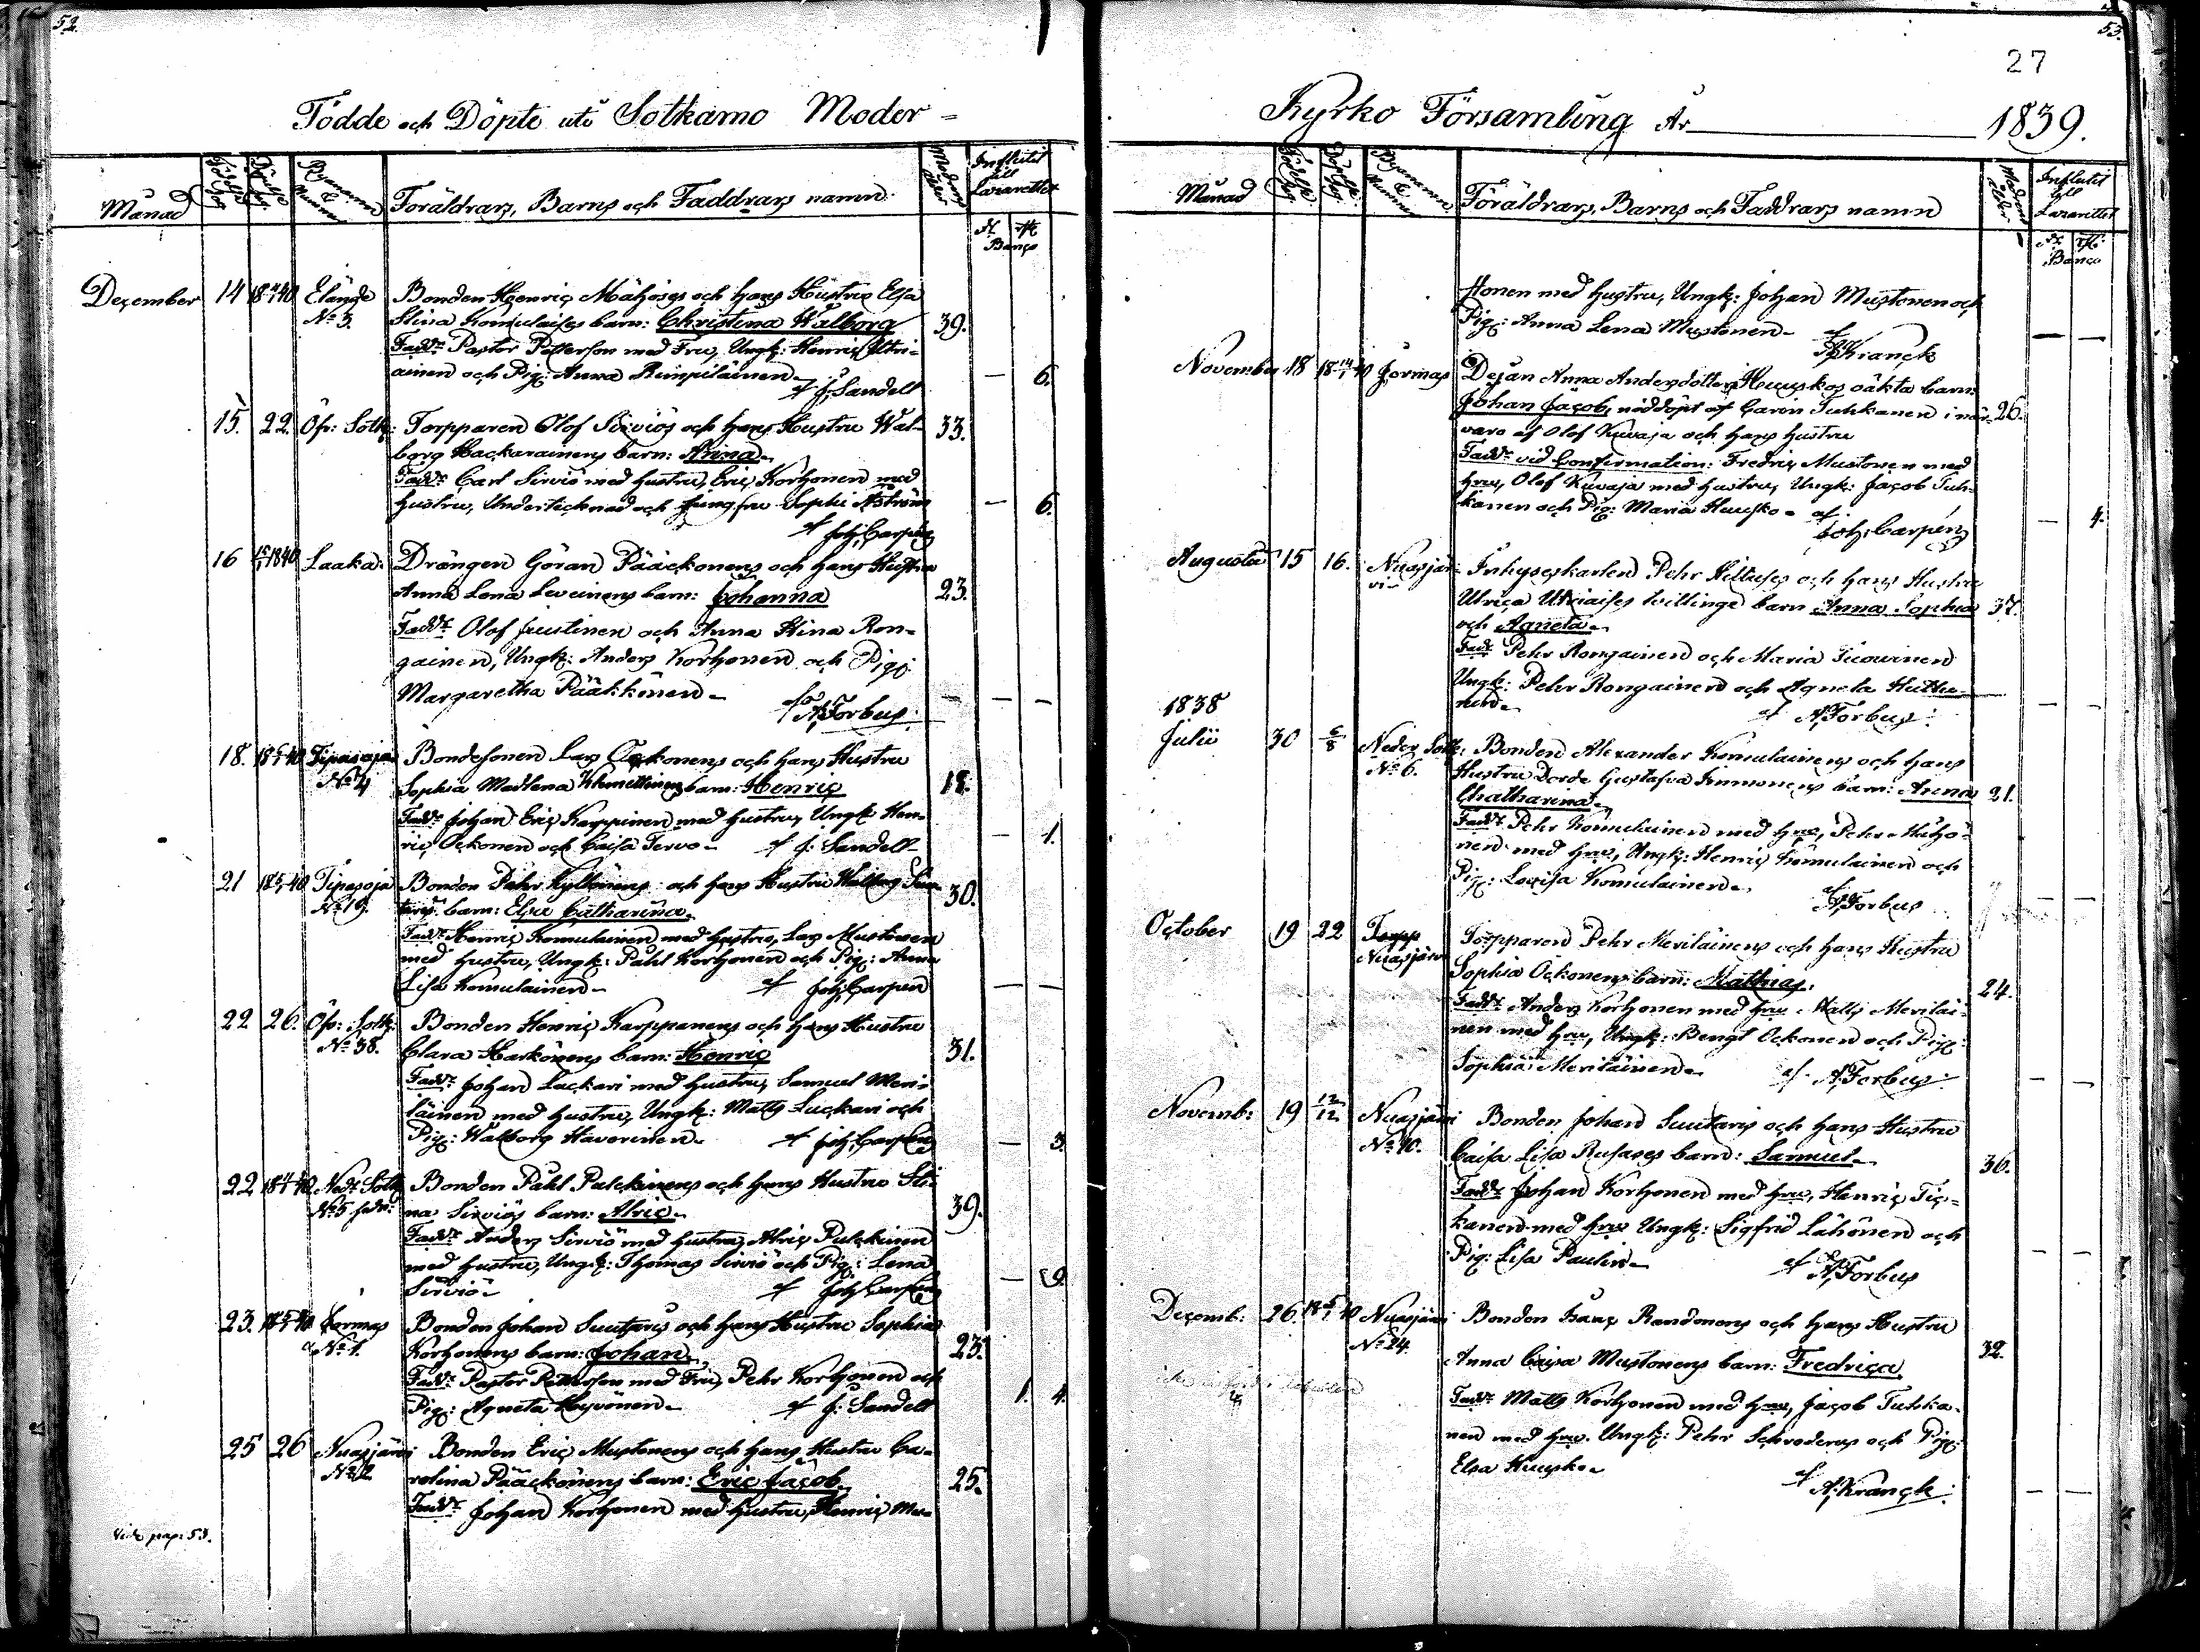 52.
Födde och Döpte uti Sotkamo Moder-
Månad
Födelse dag
Döpelse dag
Bynamn & Nummer
Föräldrars, Barns och Faddrars namn
Modrens ålder
Influtit till Lazarettet
Banco
December 14 18 40 Elänge Bonden Henric Mähöses och hans Hustru Elsa
No 3. Stina Komulaises barn: Christina Walborg 39.
Faddr Pastor Petterson med Fru, Ungk: Henric Utri-
ainen och Pig: Anna Rimpiläinen - af J. Sandell — 6.
15. 22. Öfr: Sotk: Torpparen Olof Sirviös och hans Hustru Wal- 33.
borg Hackarainens barn: Anna -
Faddr Carl Sirviö med hustru, Eric Korhonen med
hustru, Undertecknad och Jungfru Sophi Aström — 6.
af Joh: Carpén
16 1840 Laaka: Drängen Göran Pääckönens och hans Hustru
Anna Lena Leveinens barn: Johanna 23.
Faddr Olof Juustinen och Anna Stina Ron-
gainen, Ungk: Anders Korhonen och Pig:
Margaretha Pääkkönen - af A. Forbus — —
18. 18 40 Tipasoja Bondesonen Lars Ockonens och hans Hustru
No 4 Sophia Madlena Klemettinens barn: Henric 18.
Faddr Johan Eric Karppinen med hustru, Ungk: Hen-
ric Ockonen och Caisa Tervo - af J. Sandell — 1.
21 18 40 Tipasoja Bonden Pehr Kyllönens och hans Hustru Walborg
No 19. barn: Elsa Catharina. 30.
Faddr Henric Komulainen med hustru, Lars Mustonen
med hustru, Ungk: Påhl Korhonen och Pig: Anna
Lisa Komulainen - af Joh: Carpén — —
22 26. Öfr: Sotk: Bonden Henric Karppanens och hans Hustru
No 38. Clara Harkönens barn: Henric 31.
Faddr Johan Luckari med hustru, Samuel Meri-
läinen med hustru, Ungk: Matts Luckari och
Pig: Walborg Haverinen - af Joh: Carpén — 3.
22 18 40 Nedr Sotk Bonden Påhl Pulckinens och hans Hustru Sti-
No 5 na Sirviös barn: Alric - 39.
Faddr Anders Sirviö med hustru, Alric Pulckinen
med hustru, Ungk: Thomas Sirviö och Pig: Lena
Sirviö - af Joh: Carpén — 9.
23. 18 40 Jormas Bonden Johan Suutaris och hans Hustru Sophia
No 1. Korhonens barn: Johan 23.
Faddr Pastor Petterson med Fru, Pehr Korhonen och
Pig: Agneta Hyvönen - af J. Sandell 1. 4.
25 26 Nuasjärvi Bonden Eric Mustonens och hans Hustru Ca-
No 2 rolina Pääckönens barn: Eric Jacob. 25.
Faddr Johan Korhonen med hustru, Henric Mu-
Vide pag: 53.
53.
27
Kyrko Församling År 1839.
Månad
Födelse dag
Döpelse dag
Bynamn & Nummer
Föräldrars, Barns och Faddrars namn
Modrens ålder
Influtit till Lazarettet
Banco
stonen med hustru, Ungk: Johan Mustonen och
Pig: Anna Lena Mustonen - — —
af A. Kranck
November 18 18 40 Jormas Dejan Anna Andersdotter Huuskos oäkta barn:
Johan Jacob, nöddöpt af Carin Tuhkanen i när- 26.
varo af Olof Kuvaja och hans hustru
Faddr vid Confirmation: Fredric Mustonen med
hru, Olof Kuvaja med hustru, Ungk: Jacob Tuh-
kanen och Pig: Maria Huusko - af — 4.
Joh: Carpén
Augusti 15 16. Nuasjär- Inhyseskarlen Pehr Hiltuses och hans Hustru
vi - Ulrica Utriaises tvillinge barn Anna Sophia 37.
och Agneta -
Fadr Pehr Rongainen och Maria Tuovinen
Ungk: Pehr Rongainen och Agneta Huttu-
nen - af A. Forbus — —
1838
Julii 30 6/8 Neder Sotk: Bonden Alexander Komulainens och hans
No 6. Hustru Dorde Gustafva Immonens barn: Anna 21.
Chatharina -
Faddr Pehr Komulainen med hru, Pehr Mähö-
nen med hru, Ungk: Henric Komulainen och
Pig: Lovisa Komulainen - af
A. Forbus — —
October 19 22 Torpp Torpparen Pehr Meriläinens och hans Hustru
Nuasjärvi Sophia Ockonens barn: Mathias. 24.
Faddr Anders Korhonen med hru, Matts Meriläi-
nen med hru, Ungk: Bengt Ockonen och Pig:
Sophia Meriläinen - af A. Forbus — —
Novemb: 19 12/12 Nuasjärvi Bonden Johan Suutaris och hans Hustru
No 10. Caisa Lisa Rusases barn: Samuel - 36.
Faddr Johan Korhonen med hru, Henric Tic-
kanen med hru Ungk: Sigfrid Lähönen och
Pig: Lisa Paulin - af A. Forbus — —
Decemb: 26. 18 40 Nuasjärvi Bonden Isaac Randonens och hans Hustru
No 24. Anna Caisa Mustonens barn: Fredrica 32.
Faddr Matts Korhonen med hru, Jacob Tuhka-
nen med hru. Ungk: Pehr Schroderus och Pig:
Elsa Huusko - af A. Kranck — —